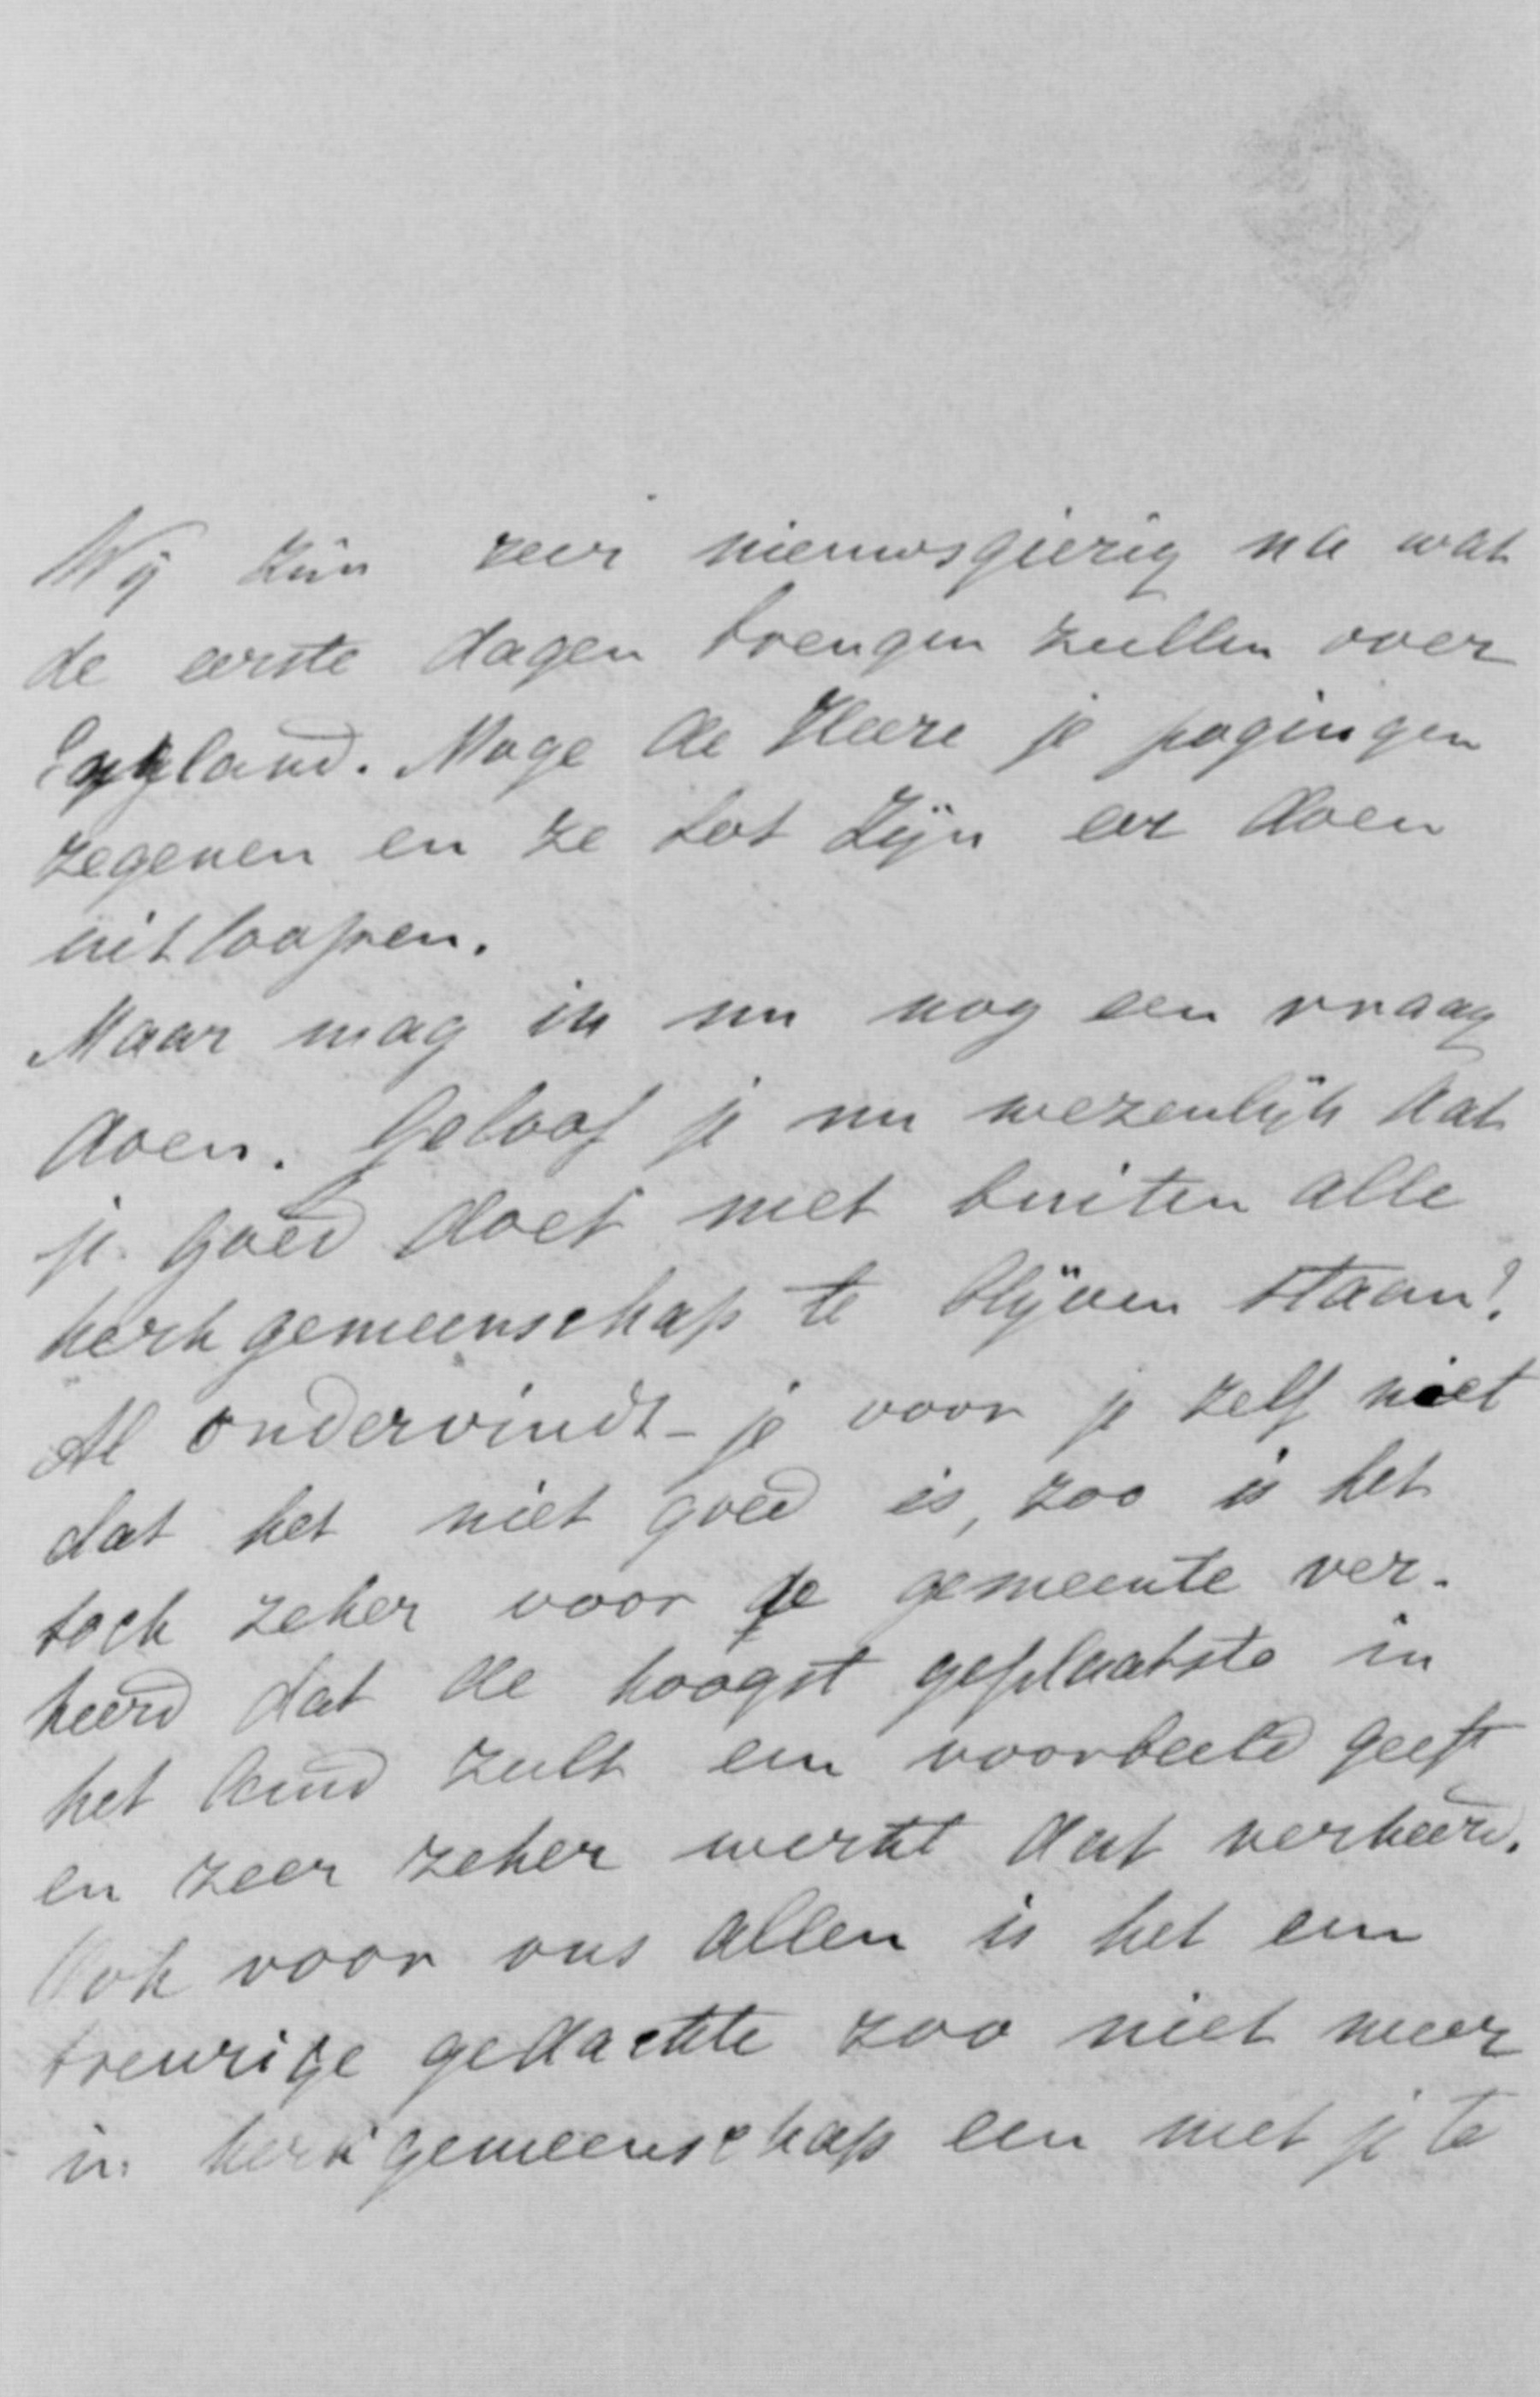 Wij zijn zeer nieuwsgierig na wat
de eerste dagen brengen zullen over
Engeland. Moge de Heere je pogingen
zegenen en ze tot Zijn eer doen
uitloopen.
Maar mag ik nu nog een vraag
doen. Geloof je nu wezenlijk dat
je goed doet met buiten alle
kerkgemeenschap te blijven staan?
Al ondervindt je voor je zelf niet
dat het niet goed is, zoo is het
toch zeker voor de gemeente ver-
keerd dat de hoogst geplaatste in
het land zulk een voorbeeld geeft
en zeer zeker werkt dat verkeerd.
Ook voor ons allen is het een
treurige gedachte zoo niet meer
in kerkgemeenschap een met je te